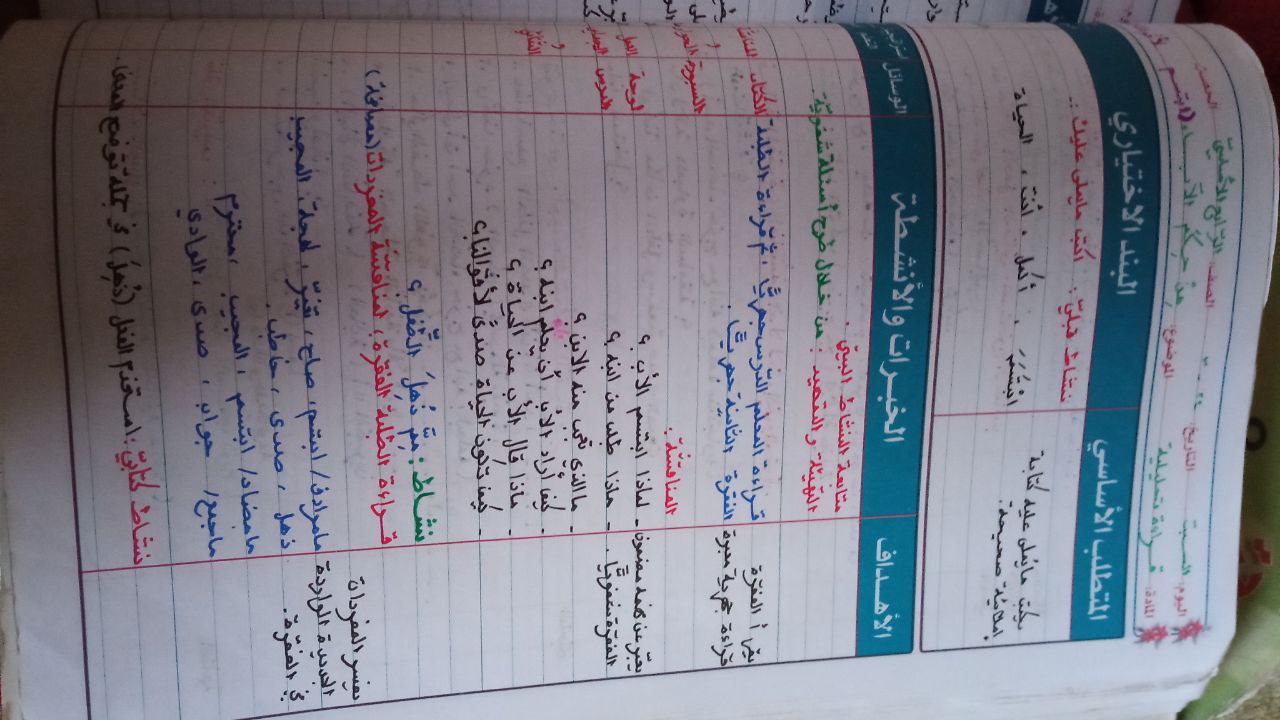 اليوم: السبت التاريخ: الصف: الرابع الأساسي الحصة:
المادة: قراءة تحليلية الموضوع: من حكم الآباء (ابتسم
المتطلب الأساسي
البند الاختياري
يكتب ما يملى عليه كتابة
إملائية صحيحة.
نشاط قبلي: أكتب ما يملى عليك:
ابتسم، أكمل، أنت، الحياة
الأهداف
الخبرات والأنشطة
الوسائل
متابعة النشاط البيتي.
التهيئة والتمهيد: من خلال طرح أسئلة شفوية
يقرأ الفقرة
قراءة جهرية معبرة
قراءة المعلم الدرس جهريًّا، ثم قراءة الطلبة
الفقرة الثانية جهريًّا.
الكتاب
السبورة
لوحة
الدرس
المناقشة:
يعبر عن فهمه مضمون
الفقرة شفويًّا.
- لماذا ابتسم الأب؟
- ماذا طلب من ابنه؟
- ما الذي تعجب منه الابن؟
- كيف أراد الأب أن يعلم ابنه؟
- ماذا قال الأب عن الحياة؟
- كيف تكون الحياة صدى لأفعالنا؟
نشاط: ممَّ ذُهِلَ الطفل؟
قراءة الطلبة الفقرة، لمناقشة المفردات
يفسر المفردات
الجديدة الواردة
في الفقرة.
ما مرادف/ ابتسم، صاح، تغيّر، لهجة، المجيب
ذهل، صدى، خاطب.
ما مضاد/ ابتسم، المجيب، محترم
ما جمع/ جواب، صدى، الوادي
نشاط كتابي: استخدم الفعل (ذُهِلَ) في جملة توضح المعنى.